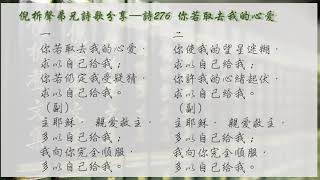 倪柝聲弟兄詩歌分享—詩276 你若取去我的心愛
一
你若取去我的心愛，
求以自己給我；
你若仍定我受疑猜，
求以自己給我。
（副）
主耶穌，親愛救主，
多以自己給我；
我向你完全順服，
多以自己給我。
二
你使我的望星迷糊，
求以自己給我；
你許我的心緒起伏，
求以自己給我。
（副）
主耶穌，親愛救主，
多以自己給我；
我向你完全順服，
多以自己給我。